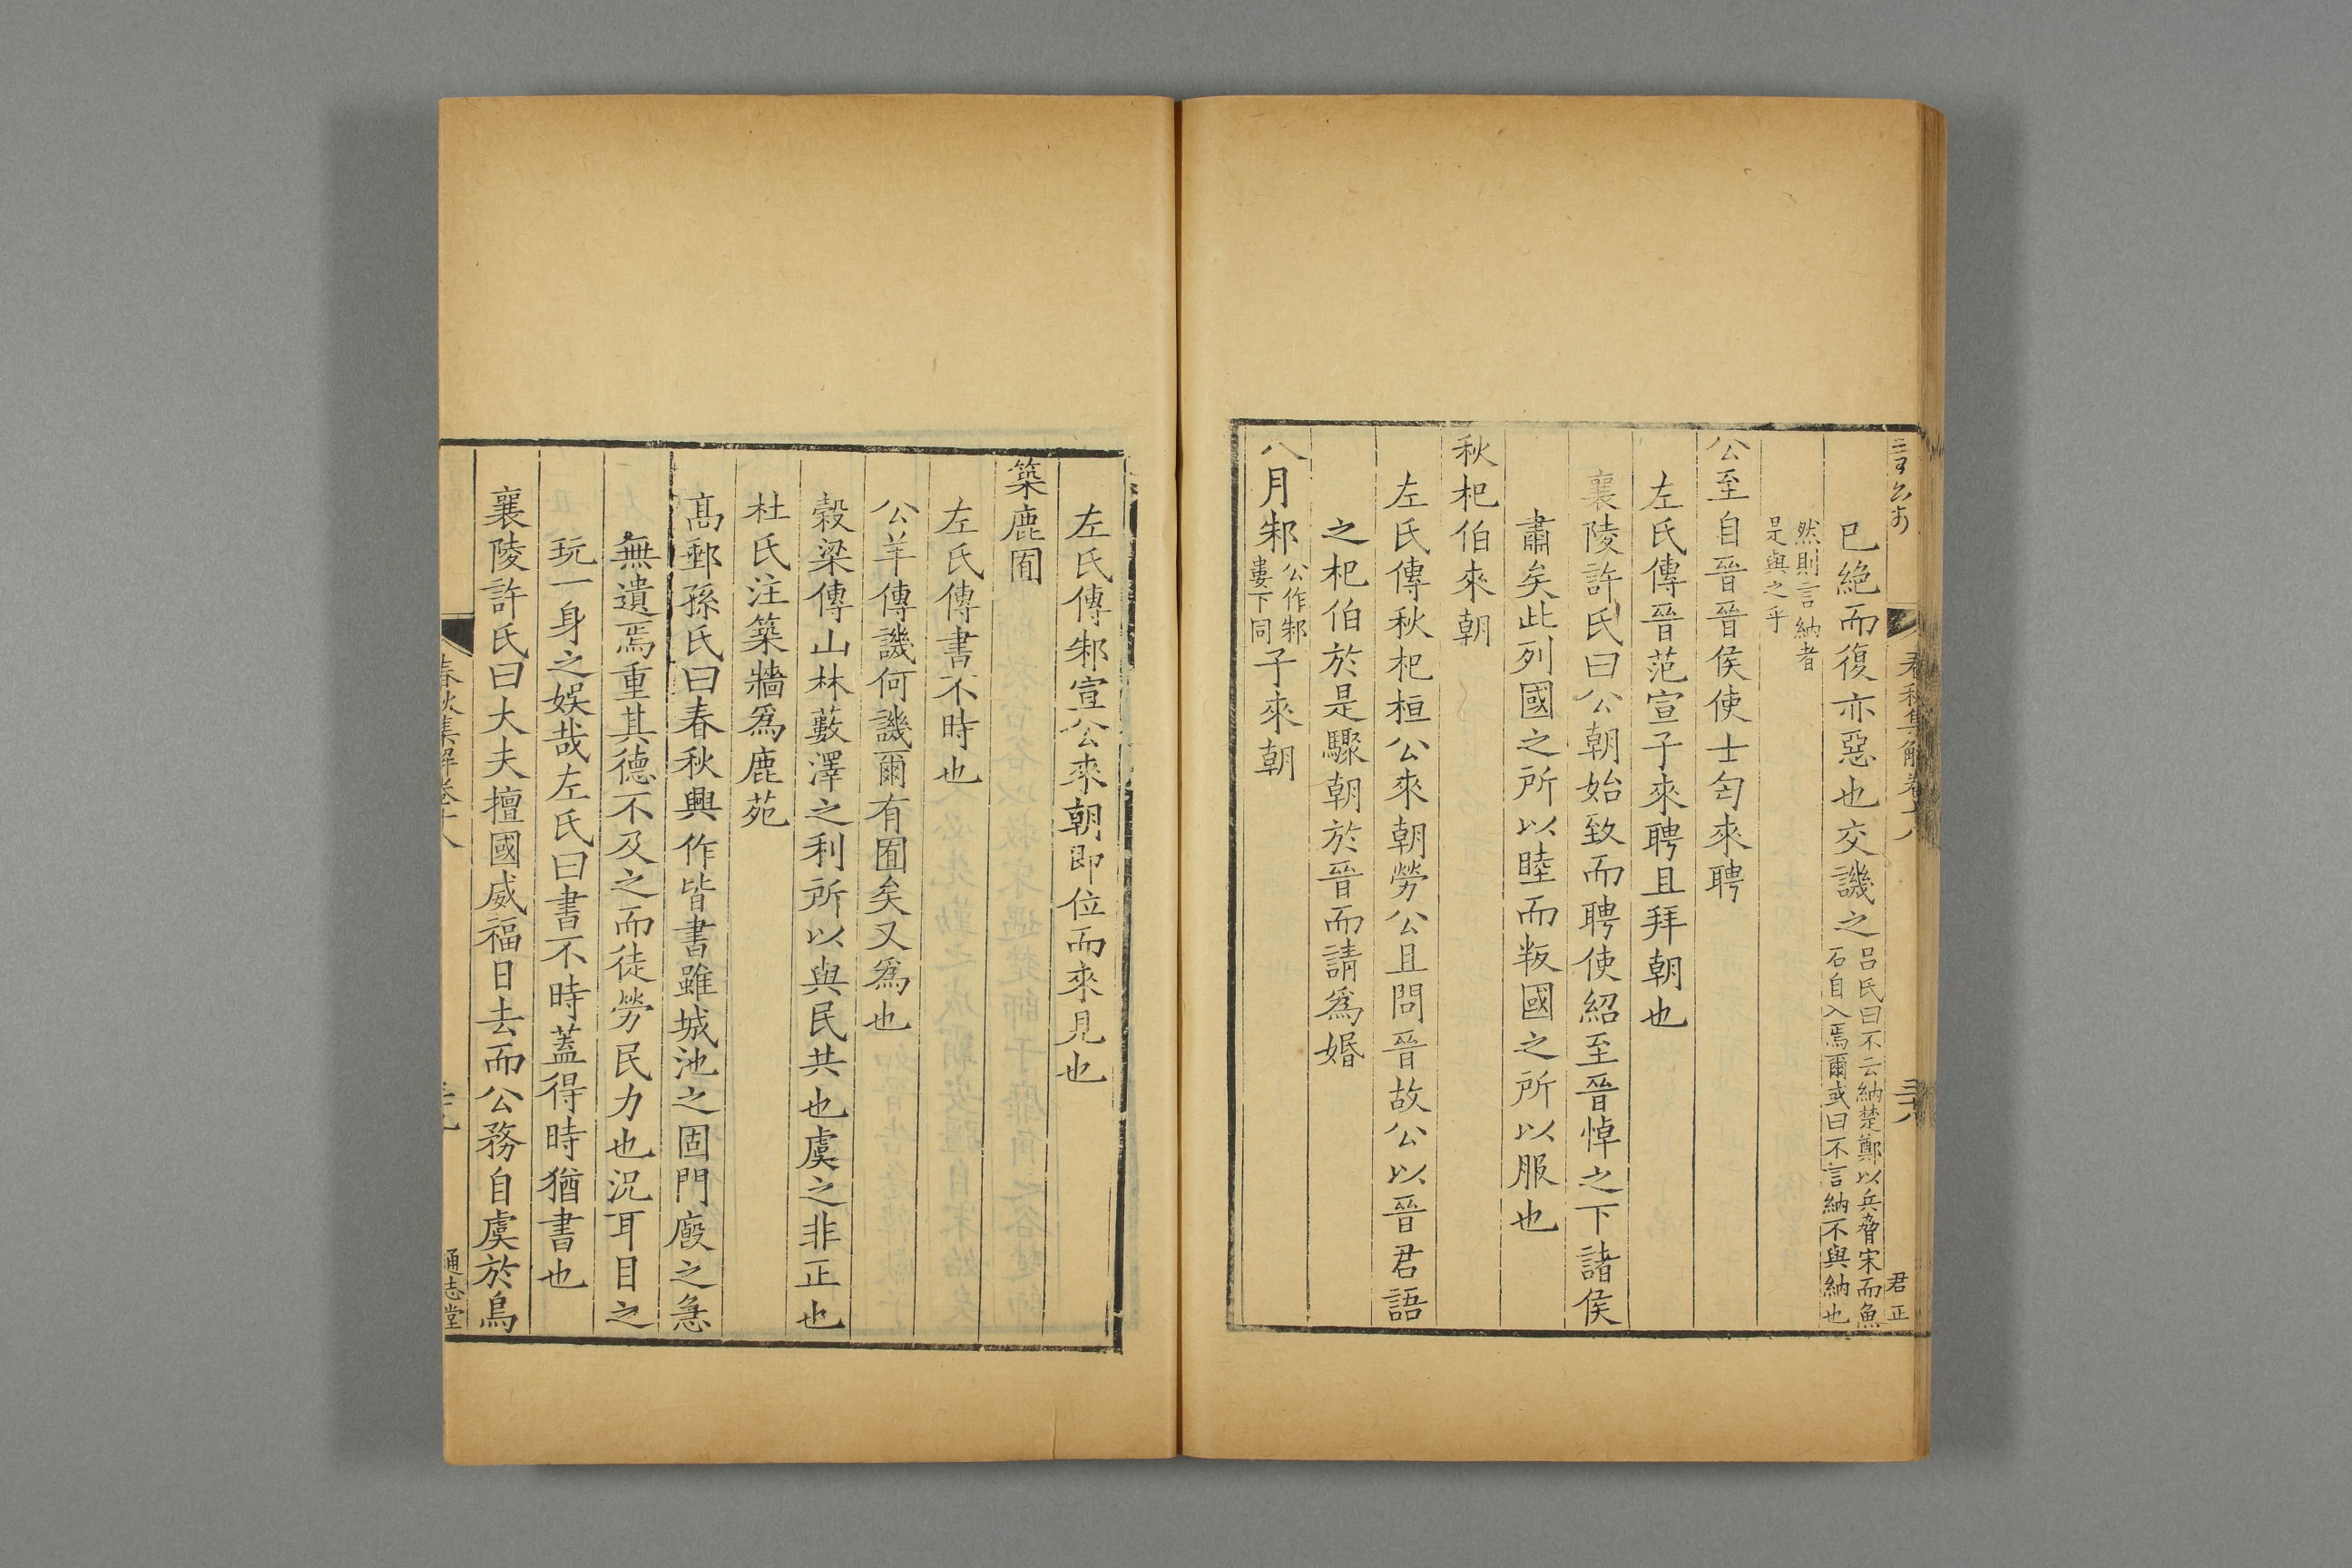 春秋集解卷十八
三十八
君正
已絶而復亦惡也交譏之呂氏曰不云納楚鄭以兵脅宋而魚
石自入焉爾或曰不言納不與納也
然則言納者
是與之乎
公至自晉晉侯使士匄來聘
左氏傳晉范宣子來聘且拜朝也
襄陵許氏曰公朝始致而聘使紹至晉悼之下諸侯
肅矣此列國之所以睦而叛國之所以服也
秋杞伯來朝
左氏傳秋杞桓公來朝勞公且問晉故公以晉君語
之杞伯於是驟朝於晉而請爲婚
八月邾公作邾
婁下同子來朝
左氏傳邾宣公來朝即位而來見也
築鹿囿
左氏傳書不時也
公羊傳譏何譏爾有囿矣又爲也
榖梁傳山林藪澤之利所以與民共也虞之非正也
杜氏注築牆爲鹿苑
髙郵孫氏曰春秋興作皆書雖城池之固門廏之急
無遺焉重其德不及之而徒勞民力也況耳目之
玩一身之娛哉左氏曰書不時蓋得時猶書也
襄陵許氏曰大夫擅國威福日去而公務自虞於鳥
春秋集解卷十八
通志堂